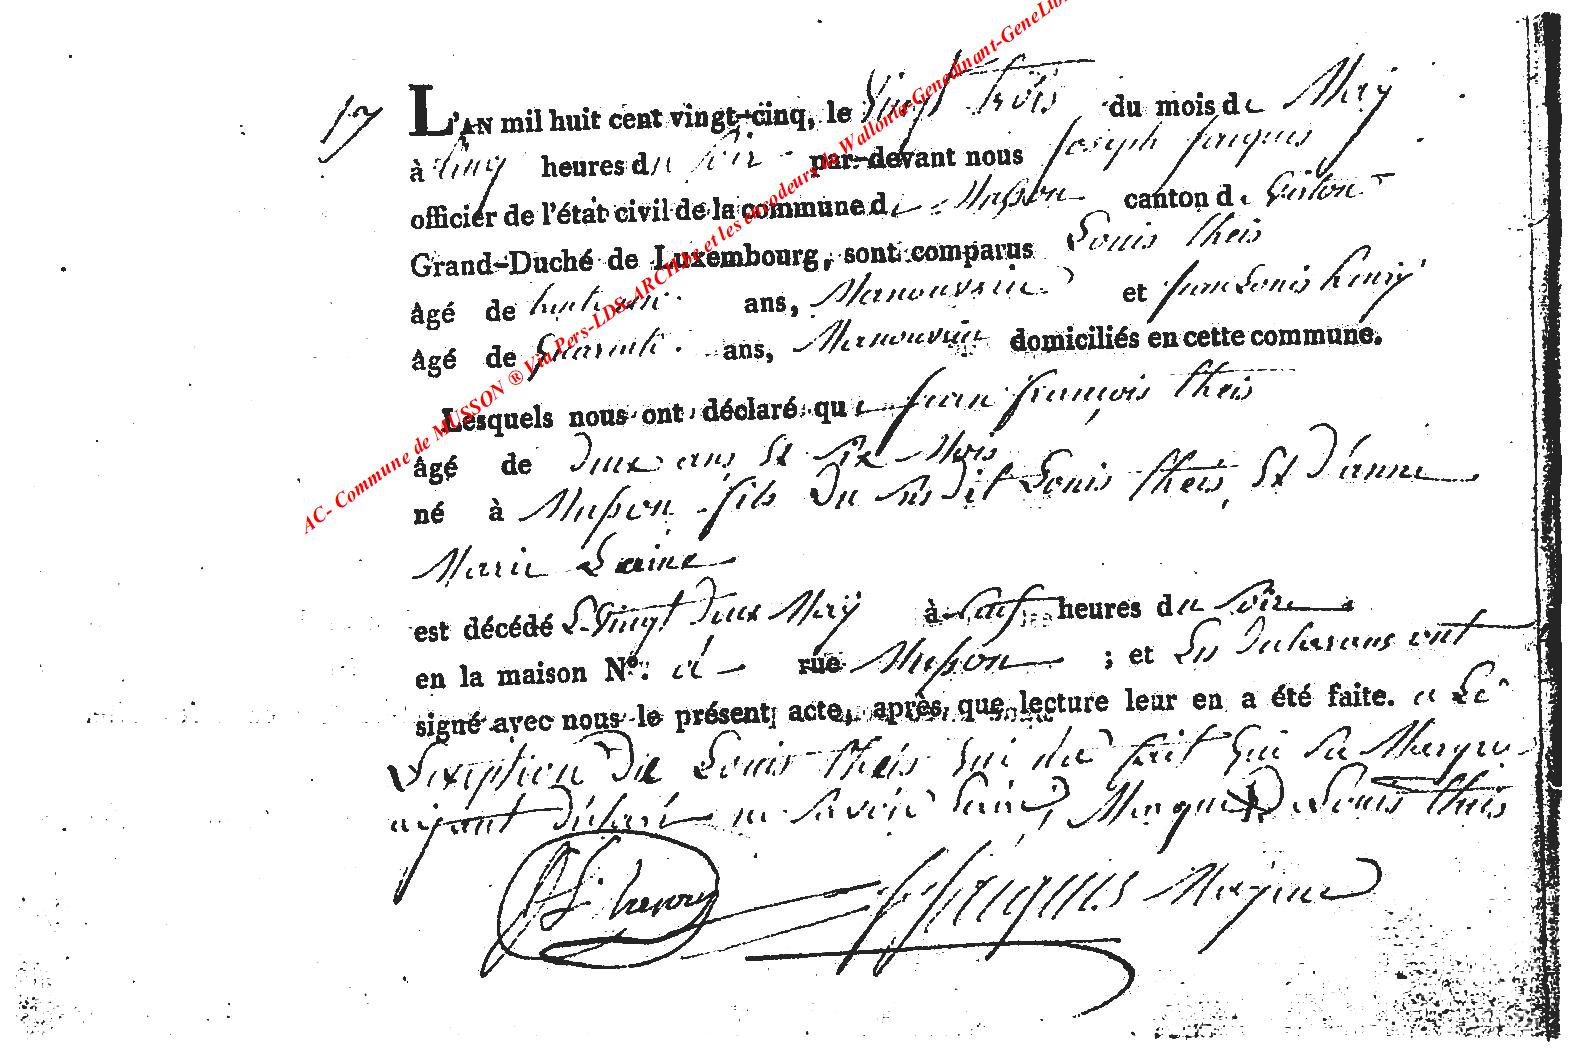 AC- Commune de MUSSON ® Via Pers-LDS-ARCH.be et les encodeurs de Wallonia-Genedinant-GeneLib
17 L'AN mil huit cent vingt-cinq, le Vingt trois du mois de Maÿ
à Cinq heures du soir par-devant nous Joseph Jacques
officier de l'état civil de la commune de Musson canton de
Grand-Duché de Luxembourg, sont comparus Louis theis
âgé de ans, Manouvrier et Jean Louis henrÿ
âgé de Quarente ans, Manouvrier domiciliés en cette commune.
Lesquels nous ont déclaré que Jean françois theis
âgé de deux ans Et Six Mois
né à Musson fils du susdit Louis theis, Et d'anne
Marie Laine
est décédé Le Vingt deux Maÿ à heures du soire
en la maison N°. à rue Musson ; et Les declarans ont
signé avec nous le présent acte, après que lecture leur en a été faite. a Le
Exeption de Louis theis qui fait Sa Marque
aÿant déclaré ne Savoir Marque de Louis theis
JL henry JJacques Maÿeur